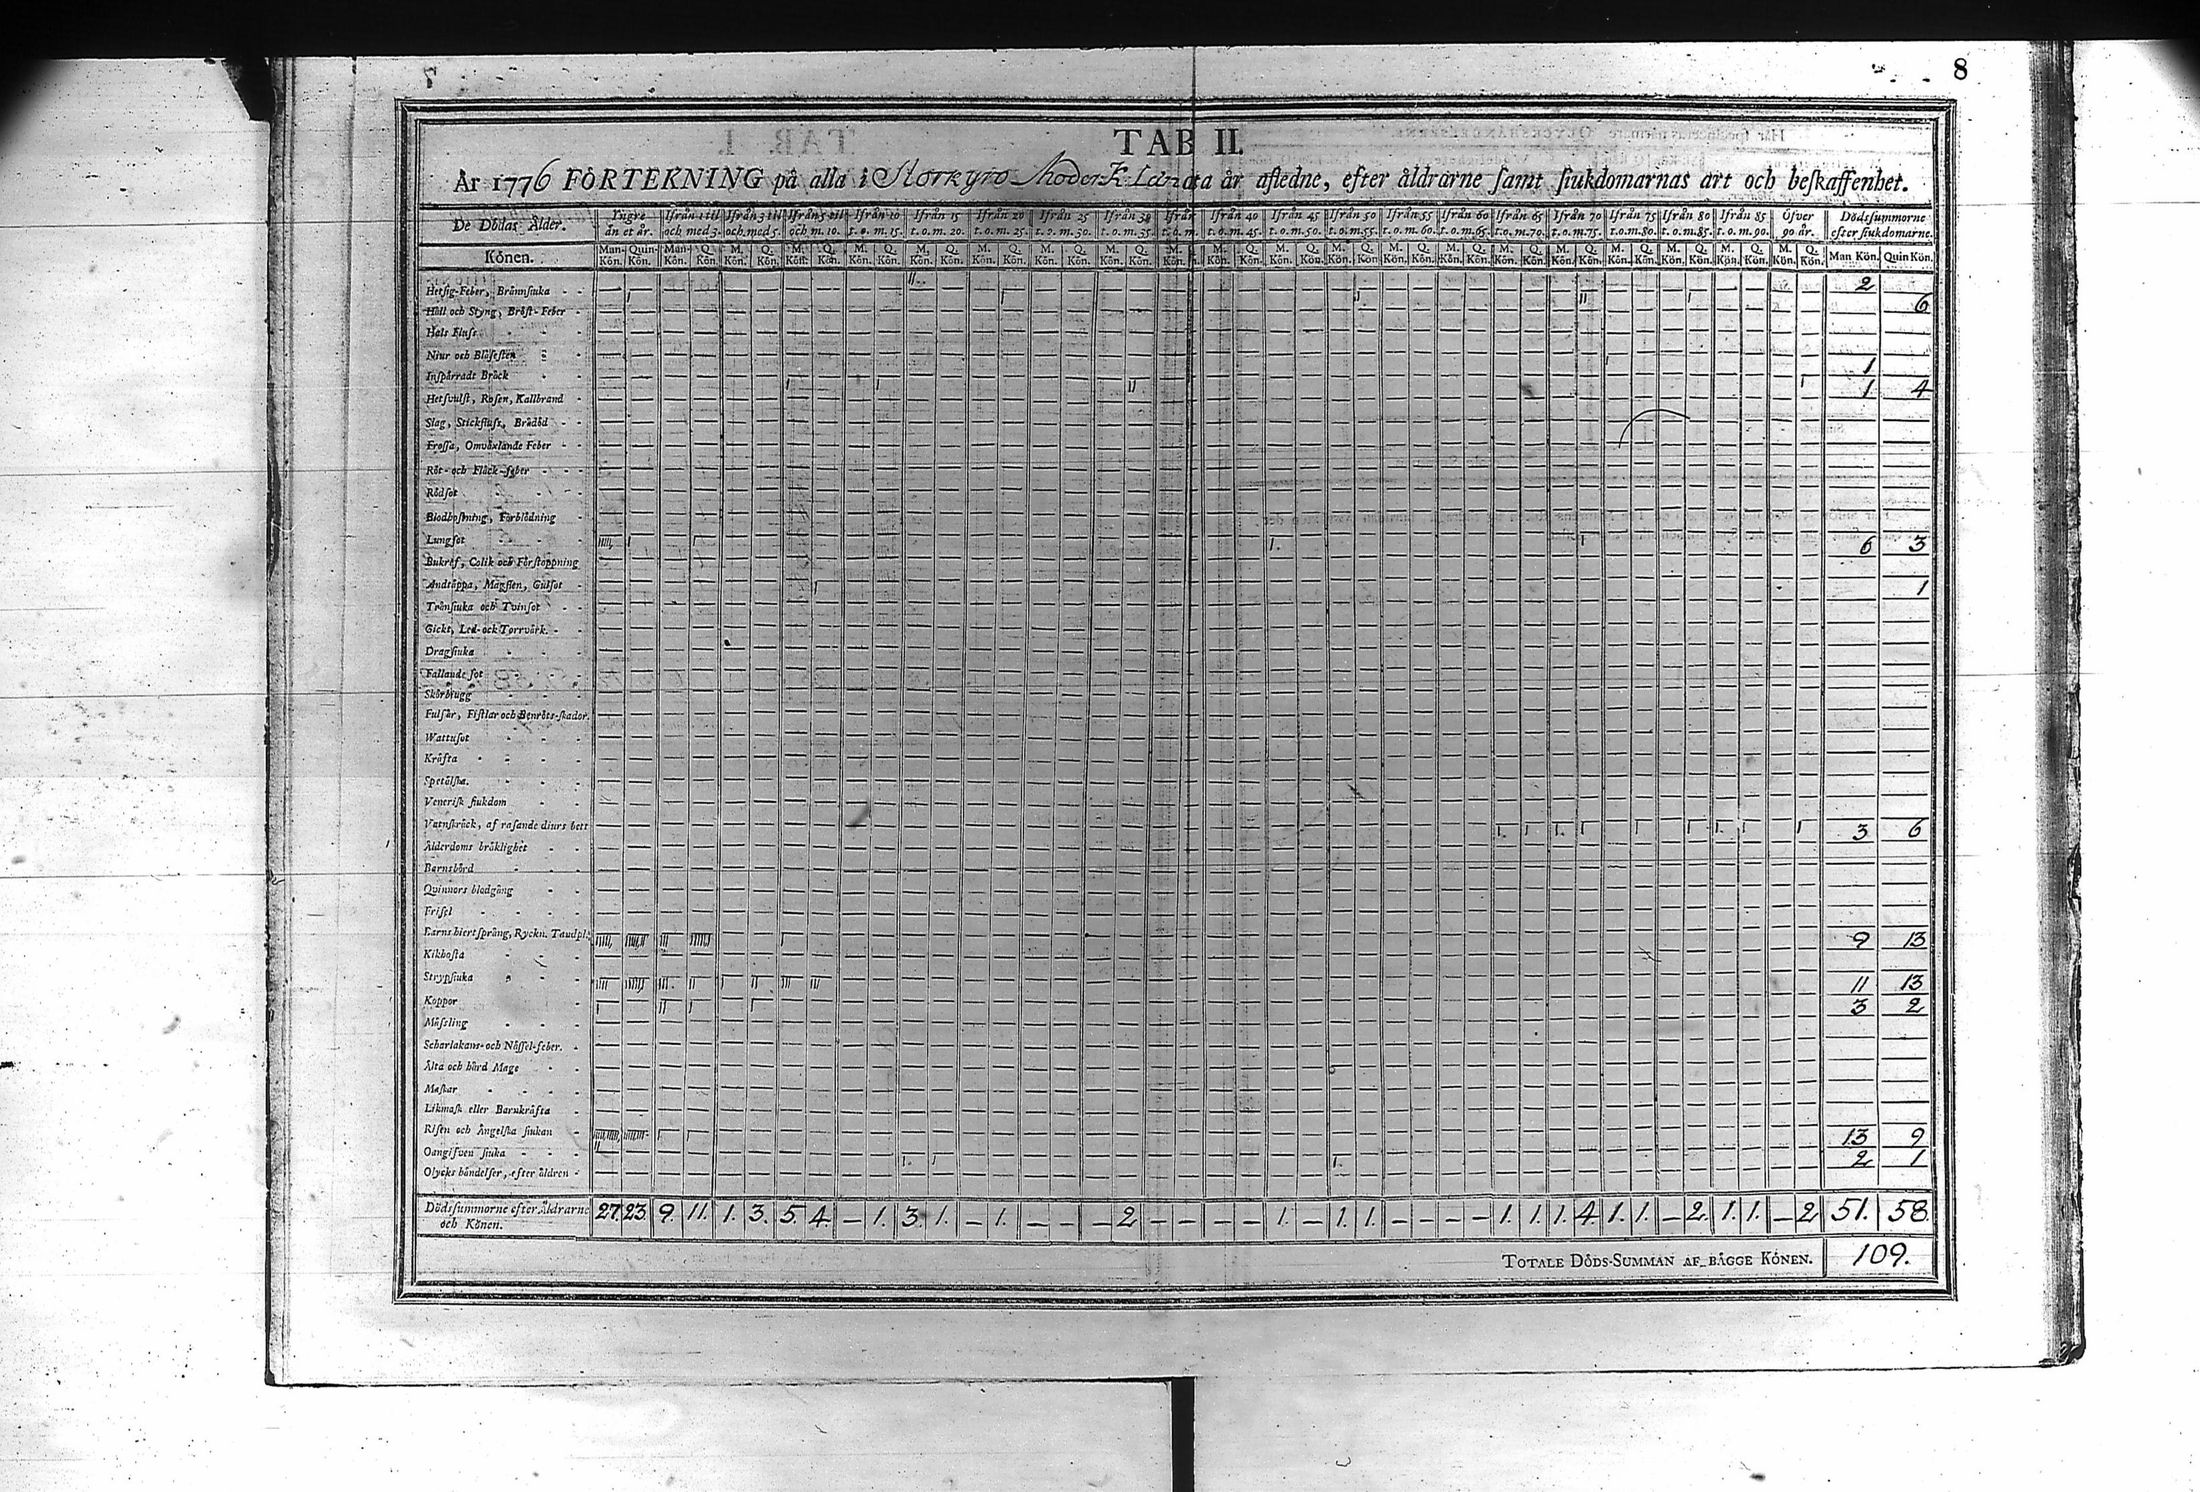 7
8
TAB II.
År 1776 FÖRTEKNING på alla i Storkyro Moder K detta år afledne, efter åldrarne samt siukdomarnas art och beskaffenhet.
De Dödas Ålder. Yngre än et år. Ifrån 1 til och med 3. Ifrån 3 til och med 5. Ifrån 5 til och m. 10. Ifrån 10 t. o. m. 15. Ifrån 15 t. o. m. 20. Ifrån 20 t. o. m. 25. Ifrån 25 t. o. m. 30. Ifrån 30 t. o. m. 35. Ifrån t. o. m. Ifrån 40 t. o. m. 45. Ifrån 45 t. o. m. 50. Ifrån 50 t. o. m. 55. Ifrån 55 t. o. m. 60. Ifrån 60 t. o. m. 65. Ifrån 65 t. o. m. 70. Ifrån 70 t. o. m. 75. Ifrån 75 t. o. m. 80. Ifrån 80 t. o. m. 85. Ifrån 85 t. o. m. 90. Öfver 90 år. Dödssummorne efter siukdomarne.
Könen. Man-Kön. Quin-Kön. Man-Kön. Q. Kön. M. Kön. Q. Kön. M. Kön. Q. Kön. M. Kön. Q. Kön. M. Kön. Q. Kön. M. Kön. Q. Kön. M. Kön. Q. Kön. M. Kön. Q. Kön. M. Kön. M. Kön. Q. Kön. M. Kön. Q. Kön. M. Kön. Q. Kön. M. Kön. Q. Kön. M. Kön. Q. Kön. M. Kön. Q. Kön. M. Kön. Q. Kön. M. Kön. Q. Kön. M. Kön. Q. Kön. M. Kön. Q. Kön. M. Kön. Q. Kön. Man Kön. Quin Kön.
Hetsig-Feber, Brännsiuka 2
Håll och Styng, Bröst-Feber 6
Hals Fluss
Niur och Blåsesten
Inspärradt Bråck 1
Hetsvulst, Rosen, Kallbrand 1 4
Slag, Stickfluss, Brådöd
Frossa, Omväxlande Feber
Röt- och Fläck-feber
Rödsot
Blodhostning, Förblödning
Lungsot 6 3
Bukref, Colik och Förstoppning
Andtäppa, Magsten, Gulsot 1
Trånsiuka och Tvinsot
Gickt, Led- och Torrvärk.
Dragsiuka
Fallande sot
Skörbiugg
Fulsår, Fistlar och Benröts-skador.
Wattusot
Kräfta
Spetälska.
Venerisk siukdom
Vatnskräck, af rasande diurs bett 3 6
Ålderdoms bräklighet
Barnsbörd
Qvinnors blodgång
Frisel
Barns hiertsprång, Ryckn. Tandpl. 9 13
Kikhosta
Strypsiuka 11 13
Koppor 3 2
Mässling
Scharlakans- och Nässel-feber.
Älta och hård Mage
Maskar
Likmask eller Barnkräfta
Risen och Ängelska siukan 13 9
Oangifven siuka 2 1
Olycks händelser, efter åldren
Dödssummorne efter Åldrarne och Könen. 27. 23. 9. 11. 1. 3. 5. 4. — 1. 3. 1. — 1. — — — 2 — — — — 1. — 1. 1. — — — — 1. 1. 1. 4. 1. 1. — 2. 1. 1. — 2 51. 58.
TOTALE DÖDS-SUMMAN AF BÄGGE KÖNEN. 109.